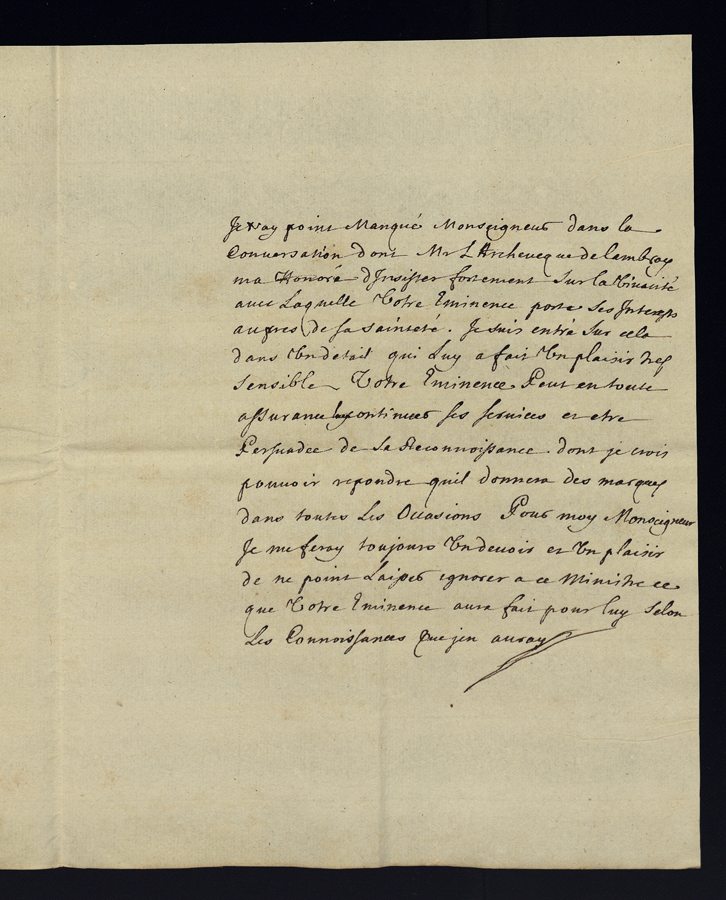 Je n'ay point Manqué Monseigneur dans la
Conversation dont Mr L'Archeveque de Cambray
ma Honoré d'Insister fortement Sur la Vivacité
avec Laquelle Votre Eminence porte ses Interests
aupres de sa sainteté. Je suis entré Sur cela
dans Un detail qui Luy a fait Un plaisir tres
Sensible Votre Eminence Peut en toute
assurance continuer ses services et etre
Persuadee de Sa Reconnoissance dont je crois
pouvoir repondre quil donnera des marques
dans toutes Les Occasions Pour moy Monseigneur
Je me feray toujours Un devoir et Un plaisir
de ne point Laisser ignorer a ce Ministre ce
que Votre Eminence aura fait pour luy Selon
Les Connoissances Que jen auray